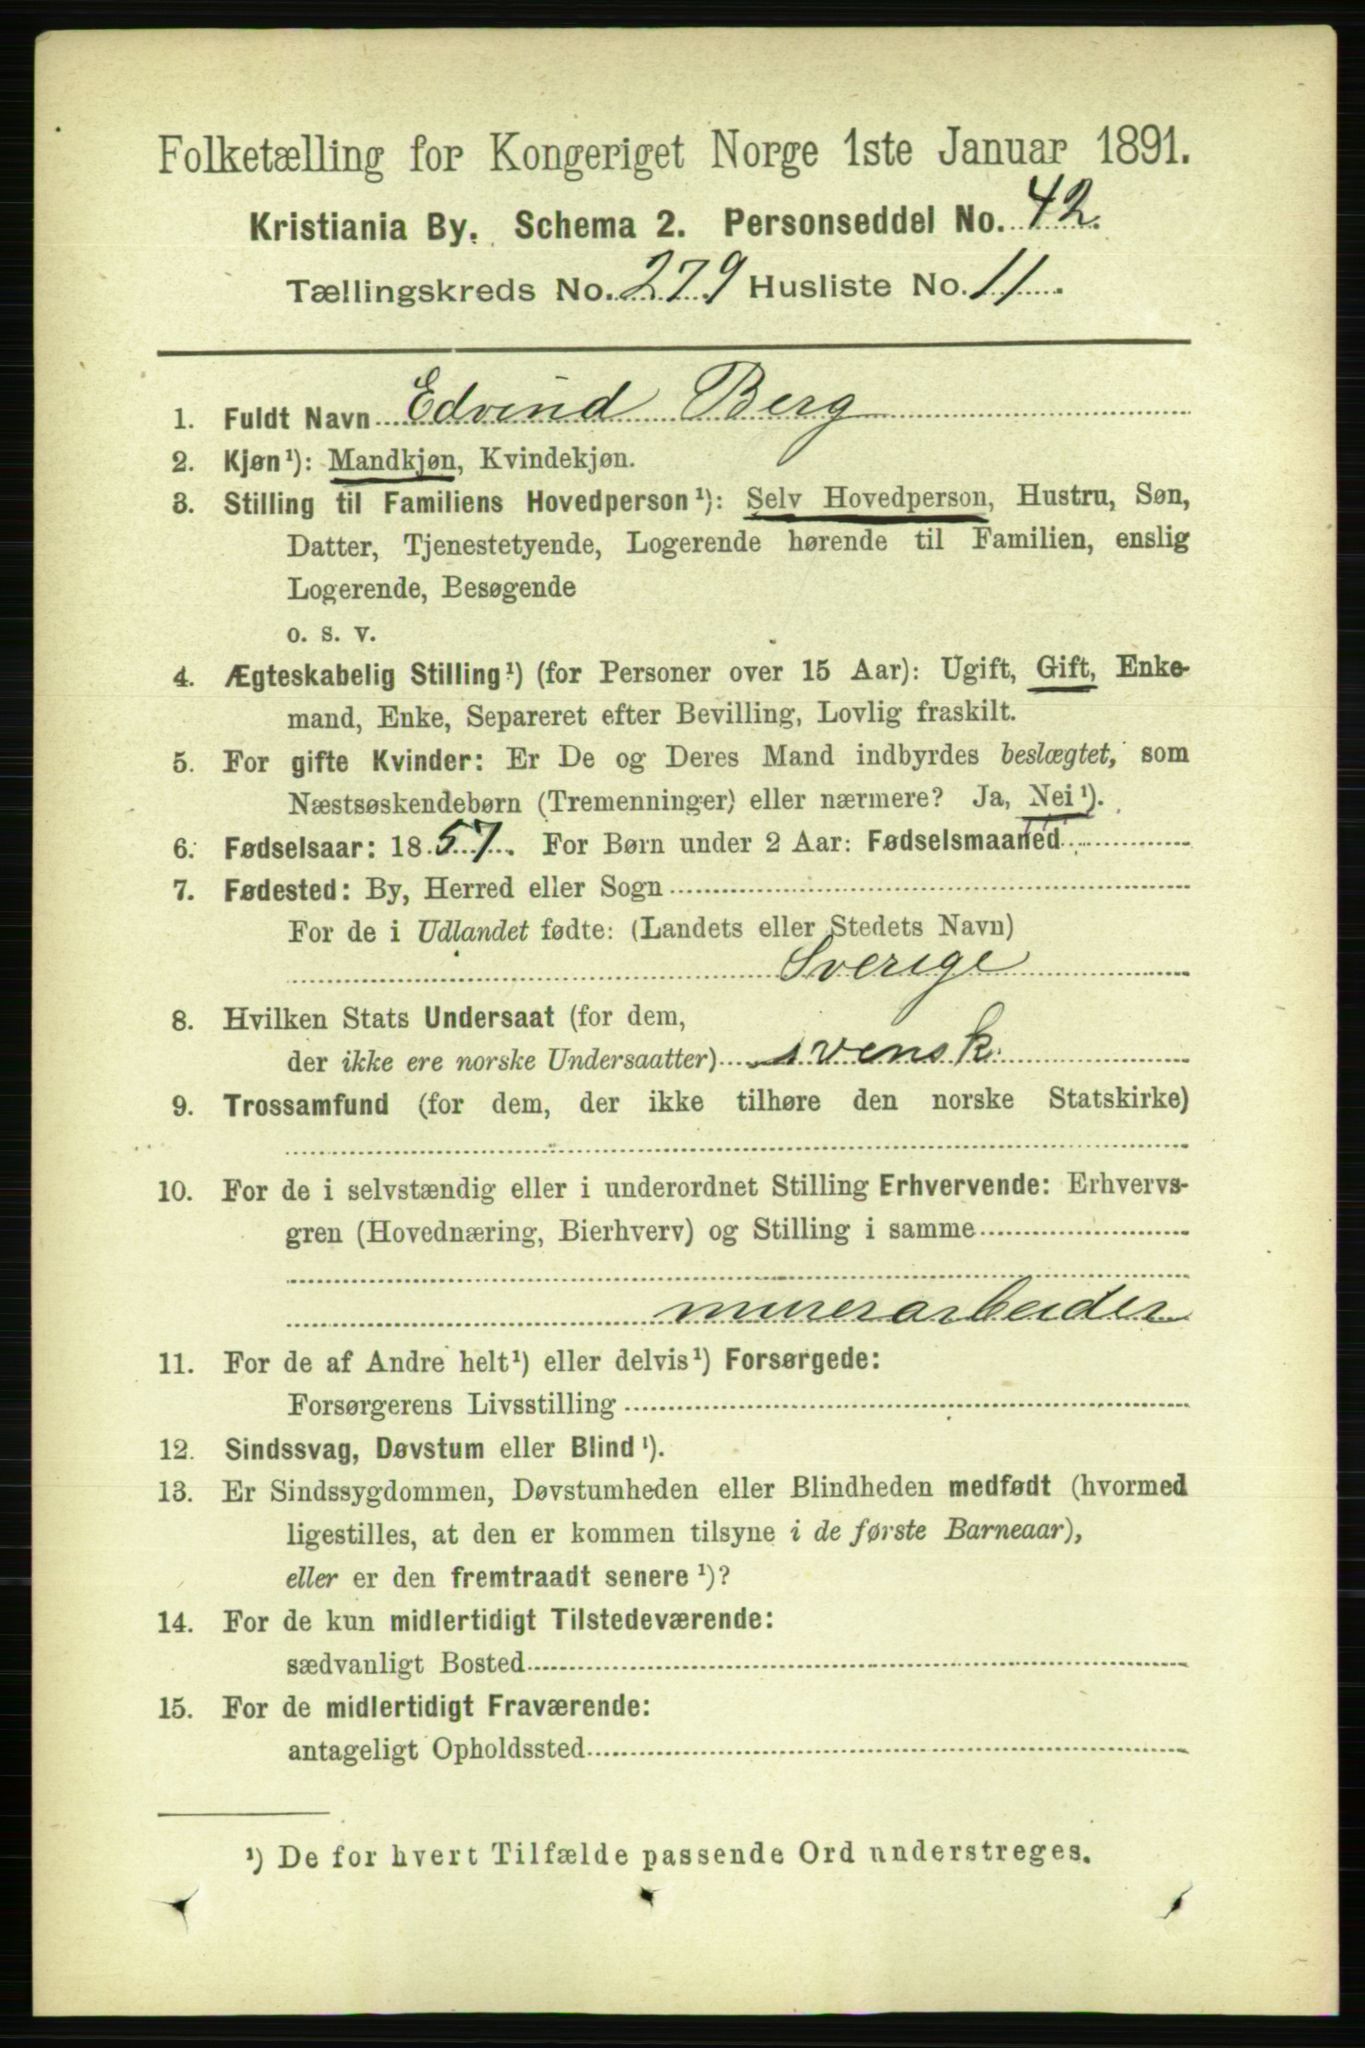 Folketælling for Kongeriget Norge 1ste Januar 1891.
Kristiania By. Schema 2. Personseddel No. 42.
Tællingskreds No. 279 Husliste No. 11
1. Fuldt Navn Edvind Berg
2. Kjøn¹): Mandkjøn, Kvindekjøn.
3. Stilling til Familiens Hovedperson¹): Selv Hovedperson, Hustru, Søn,
Datter, Tjenestetyende, Logerende hørende til Familien, enslig
Logerende, Besøgende
o. s. v.
4. Ægteskabelig Stilling¹) (for Personer over 15 Aar): Ugift, Gift, Enke-
mand, Enke, Separeret efter Bevilling, Lovlig fraskilt.
5. For gifte Kvinder: Er De og Deres Mand indbyrdes beslægtet, som
Næstsøskendebørn (Tremenninger) eller nærmere? Ja, Nei¹).
6. Fødselsaar: 1857. For Børn under 2 Aar: Fødselsmaaned
7. Fødested: By, Herred eller Sogn
For de i Udlandet fødte: (Landets eller Stedets Navn)
Sverige
8. Hvilken Stats Undersaat (for dem,
der ikke ere norske Undersaatter) svensk
9. Trossamfund (for dem, der ikke tilhøre den norske Statskirke)
10. For de i selvstændig eller i underordnet Stilling Erhvervende: Erhvervs-
gren (Hovednæring, Bierhverv) og Stilling i samme
murerarbeider
11. For de af Andre helt¹) eller delvis¹) Forsørgede:
Forsørgerens Livsstilling
12. Sindssvag, Døvstum eller Blind¹).
13. Er Sindssygdommen, Døvstumheden eller Blindheden medfødt (hvormed
ligestilles, at den er kommen tilsyne i de første Barneaar),
eller er den fremtraadt senere¹)?
14. For de kun midlertidigt Tilstedeværende:
sædvanligt Bosted
15. For de midlertidigt Fraværende:
antageligt Opholdssted
¹) De for hvert Tilfælde passende Ord understreges.